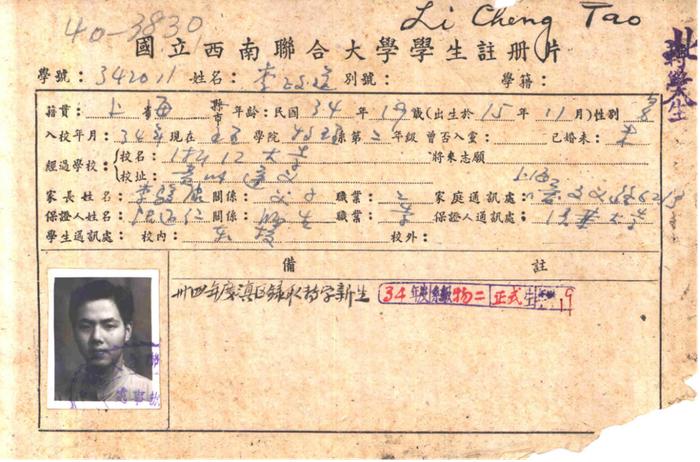 40-3830
Li Cheng Tao
國立西南聯合大學學生註册片
轉學生
學號：342011 姓名：李政道 別號： 學籍：
籍貫：上海 縣市 年齡：民國34年19歲(出生於15年11月)性別：男
入校年月：34年 現在 理 學院 物理 系第二年級 曾否入黨： 已婚未：未
經過學校： 校名：浙江大學 將來志願
校址：貴州遵义
家長姓名： 關係：父子 職業： 家庭通訊處：上海
保證人姓名： 關係：師生 職業： 保證人通訊處：
學生通訊處： 校內： 校外：
備 註
卅四年度滇區錄取轉學新生 34年度 物二 正式生 19